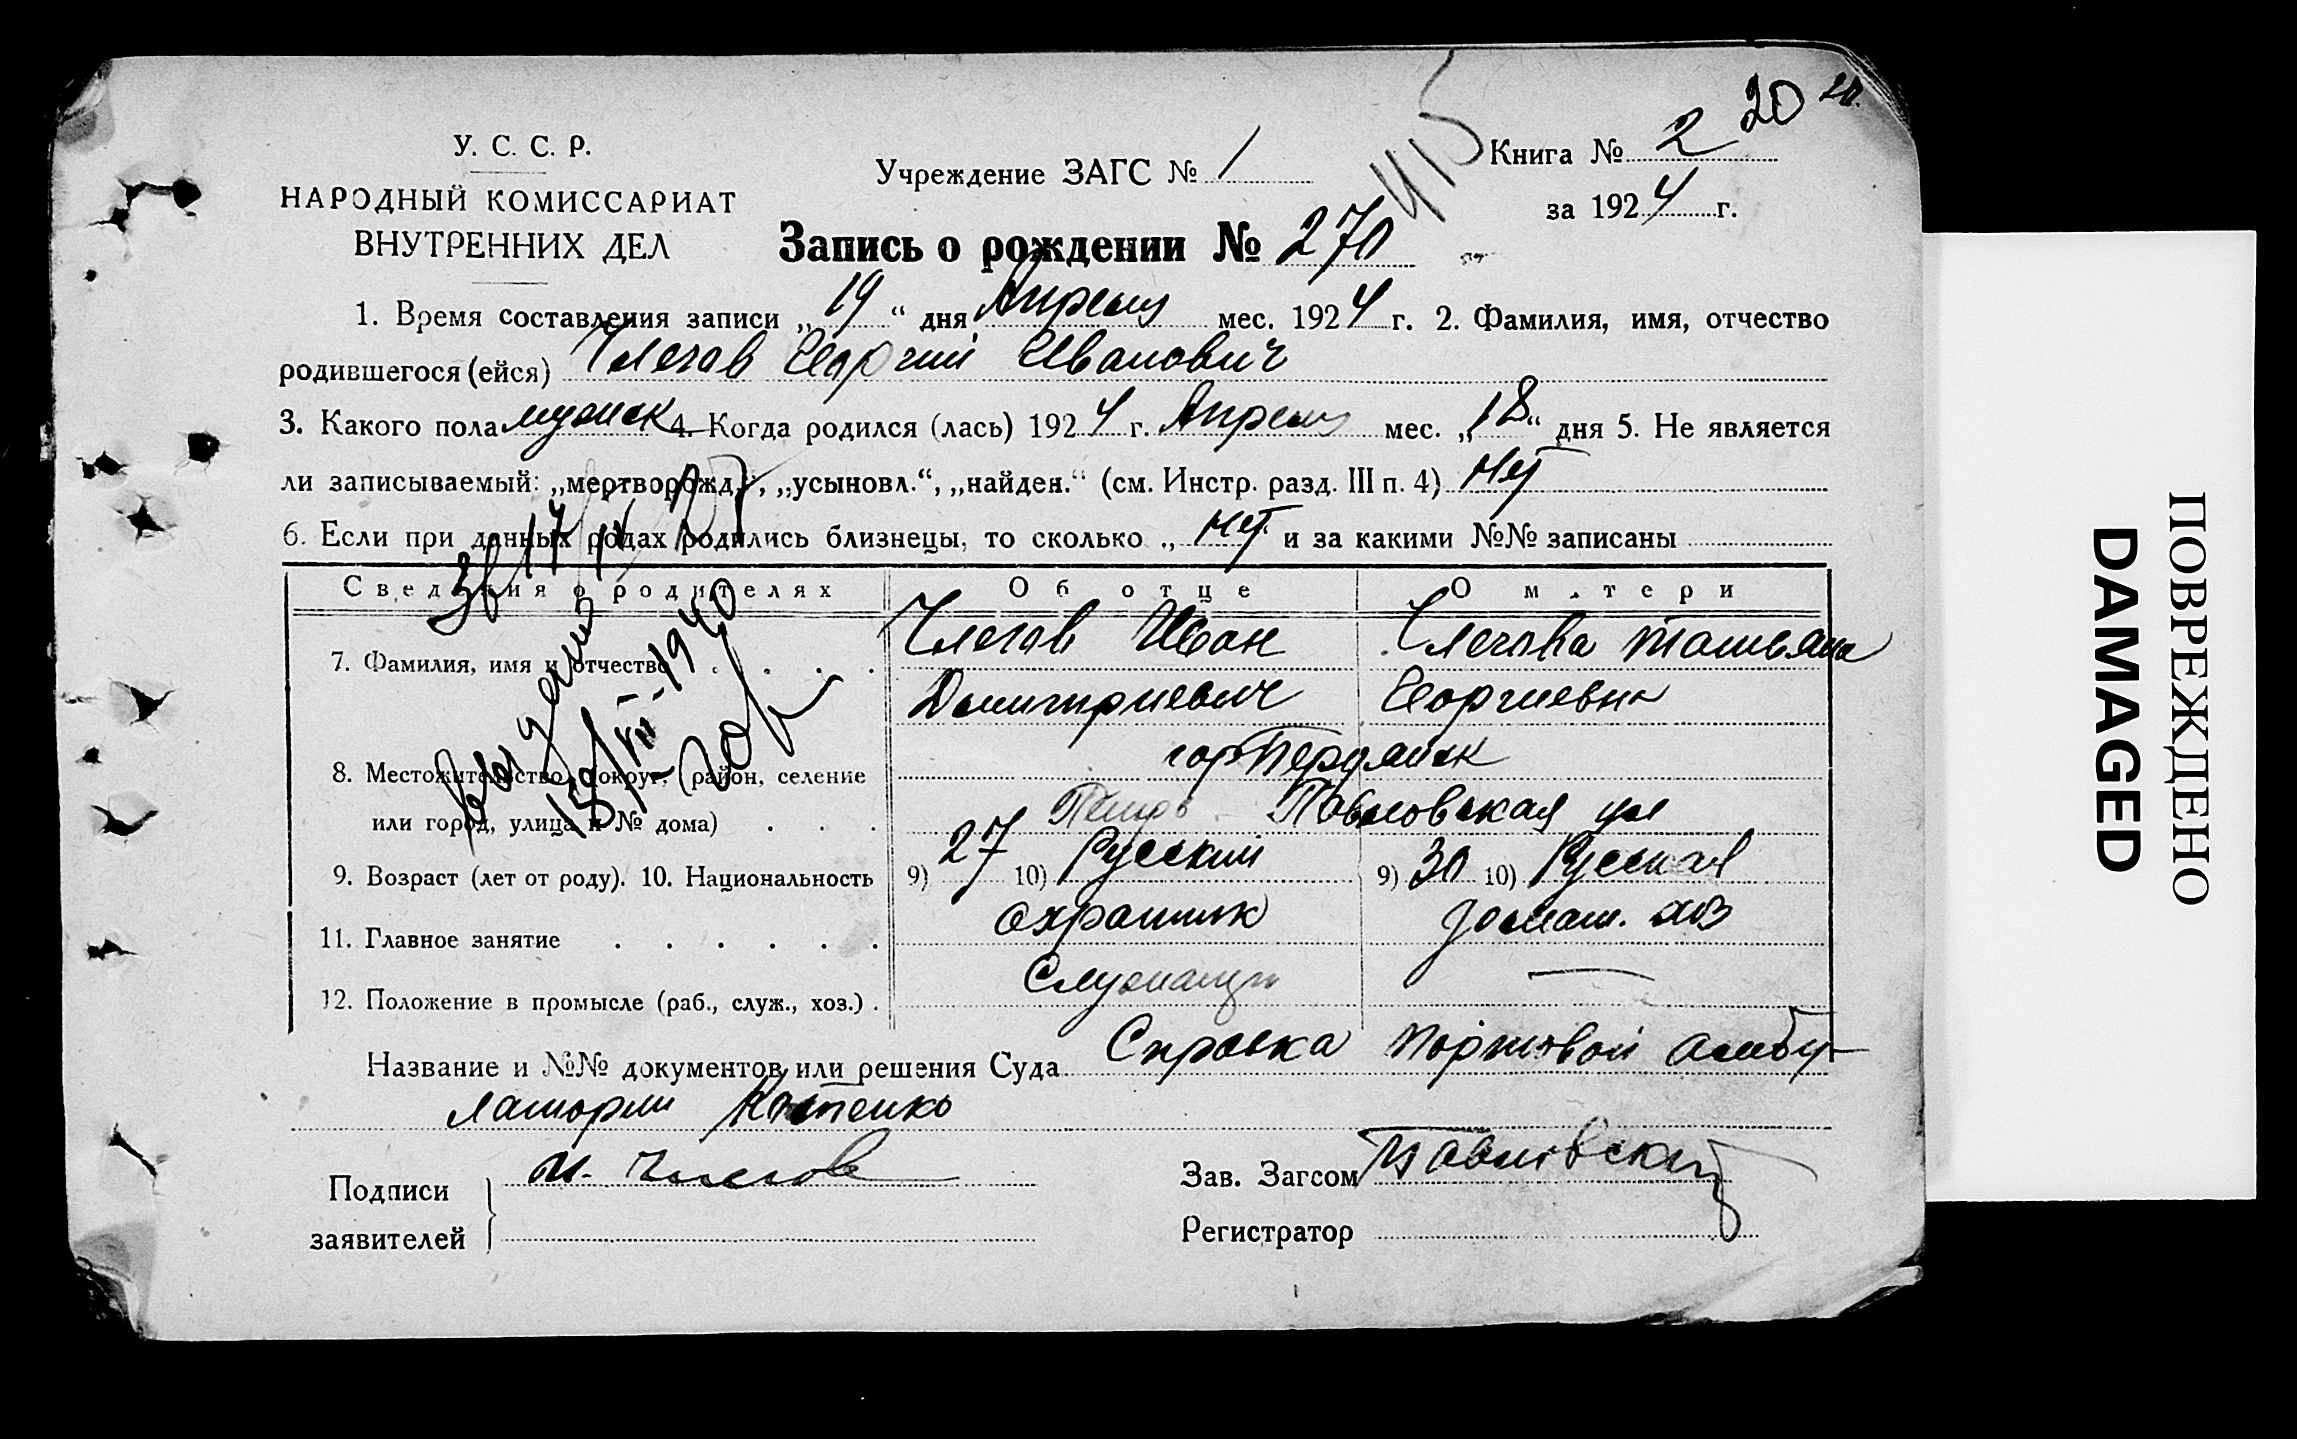 20
У. С. С. Р.
НАРОДНЫЙ КОМИССАРИАТ
ВНУТРЕННИХ ДЕЛ
Учреждение ЗАГС № 1
415
Книга № 2
за 1924 г.
Запись о рождении № 270
1. Время составления записи „19“ дня Апреля мес. 1924 г. 2. Фамилия, имя, отчество
родившегося (ейся) Георгий Иванович
3. Какого пола мужск 4. Когда родился (лась) 1924 г. Апреля мес. „18“ дня 5. Не является
ли записываемый: „мертворожд.“, „усыновл.“, „найден.“ (см. Инстр. разд. III п. 4) нет
6. Если при данных родах родились близнецы, то сколько „ нет и за какими №№ записаны
Сведения о родителях Об отце О матери
7. Фамилия, имя и отчество . . . . Иван Татьяна
Дмитриевич Георгиевн
8. Местожительство (округ, район, селение гор Бердянск
или город, улица и № дома) . . . Петро - Павловская ул
9. Возраст (лет от роду). 10. Национальность 9) 27 10) Русский 9) 30 10) Русская
11. Главное занятие . . . . . . охранник домаш. хоз
12. Положение в промысле (раб., служ., хоз.) . Служащи —
13/VII-1940
Название и №№ документов или решения Суда Справка Портовой амбу-
латории Костенко
Подписи
заявителей
Зав. Загсом Павловский
Регистратор
ПОВРЕЖДЕНО
DAMAGED